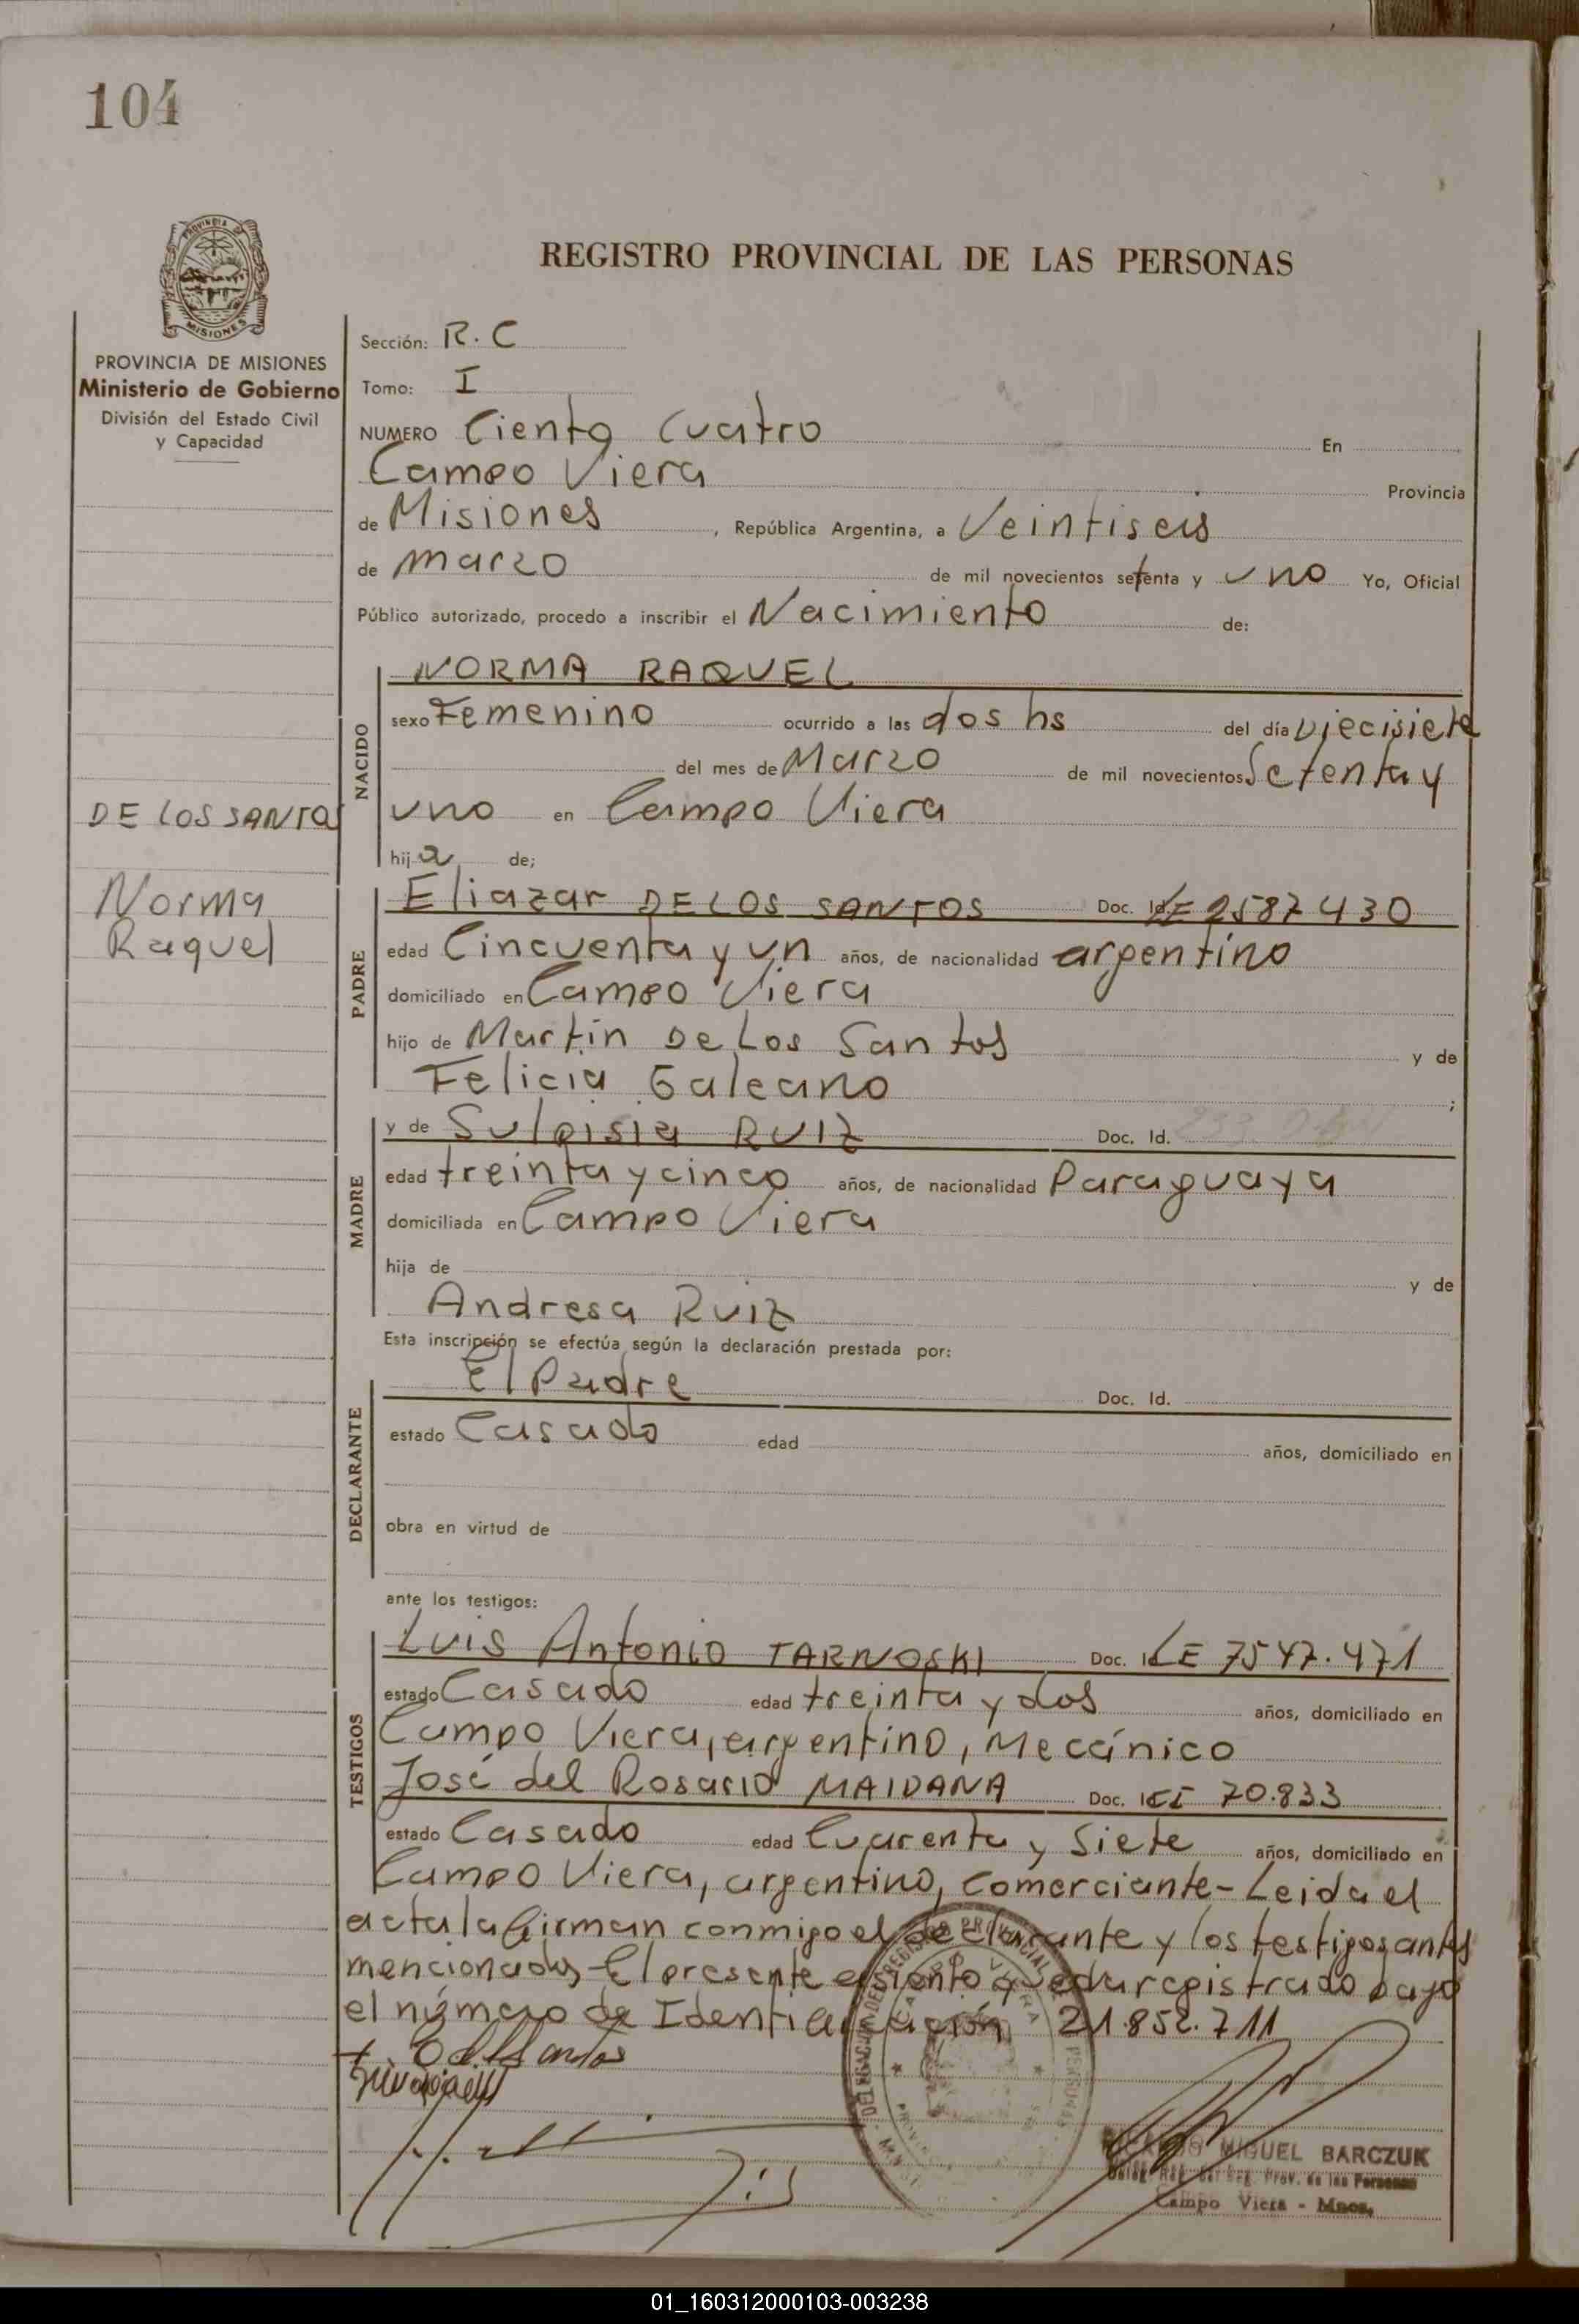 104
PROVINCIA DE
MISIONES
REGISTRO PROVINCIAL DE LAS PERSONAS
PROVINCIA DE MISIONES
Ministerio de Gobierno
División del Estado Civil
y Capacidad
DE LOS SANTOS
Norma
Raquel
Sección: R.C
Tomo: I
NUMERO Ciento Cuatro En
Campo Viera Provincia
de Misiones, República Argentina, a Veintiseis
de marzo de mil novecientos setenta y uno Yo, Oficial
Público autorizado, procedo a inscribir el Nacimiento de:
NACIDO
NORMA RAQUEL
sexo Femenino ocurrido a las dos hs del día Diecisiete
del mes de Marzo de mil novecientos Setenta y
uno en Campo Viera
hija de;
PADRE
Eliazar DE LOS SANTOS Doc. Id. LE 2587430
edad Cincuenta y un años, de nacionalidad argentino
domiciliado en Campo Viera
hijo de Martin De Los Santos y de
Felicia Galeano ;
MADRE
y de Sulpisia RUIZ Doc. Id.
edad treinta y cinco años, de nacionalidad Paraguaya
domiciliada en Campo Viera
hija de y de
Andresa Ruiz
Esta inscripción se efectúa según la declaración prestada por:
DECLARANTE
El Padre Doc. Id.
estado Casado edad años, domiciliado en
obra en virtud de
ante los testigos:
TESTIGOS
Luis Antonio TARNOSKI Doc. I LE 7547.471
estado Casado edad treinta y dos años, domiciliado en
Campo Viera, argentino, Mecánico
José del Rosario MAIDANA Doc. I CI 70.833
estado Casado edad Cuarenta y Siete años, domiciliado en
Campo Viera, argentino, Comerciante - Leida el
acta la firman conmigo el declarante y los testigos antes
mencionados - El presente asiento queda registrado bajo
el número de Identificación 21.852.711
MIGUEL BARCZUK
Prov. de las Personas
Campo Viera - Mnes.
01_160312000103-003238